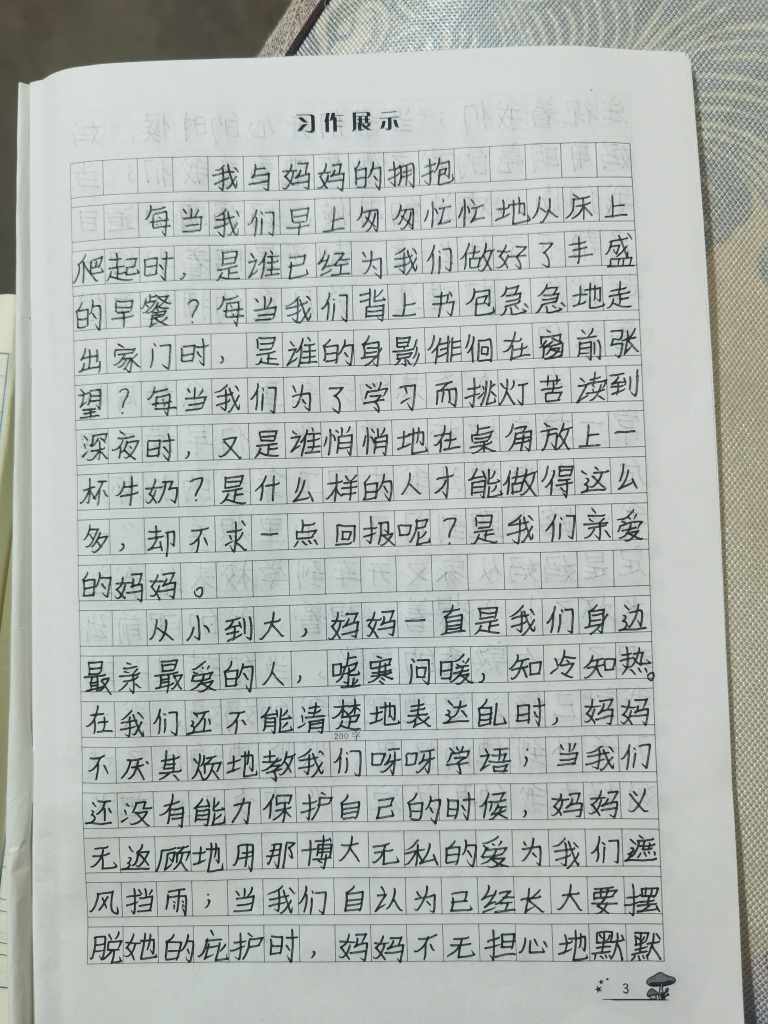 习作展示
我与妈妈的拥抱
每当我们早上匆匆忙忙地从床上
爬起时，是谁已经为我们做好了丰盛
的早餐？每当我们背上书包急急地走
出家门时，是谁的身影徘徊在窗前张
望？每当我们为了学习而挑灯苦读到
深夜时，又是谁悄悄地在桌角放上一
杯牛奶？是什么样的人才能做得这么
多，却不求一点回报呢？是我们亲爱
的妈妈。
从小到大，妈妈一直是我们身边
最亲最爱的人，嘘寒问暖，知冷知热。
在我们还不能清楚地表达自时，妈妈
200字
不厌其烦地教我们呀呀学语；当我们
还没有能力保护自己的时候，妈妈义
无返顾地用那博大无私的爱为我们遮
风挡雨；当我们自认为已经长大要摆
脱她的庇护时，妈妈不无担心地默默
3